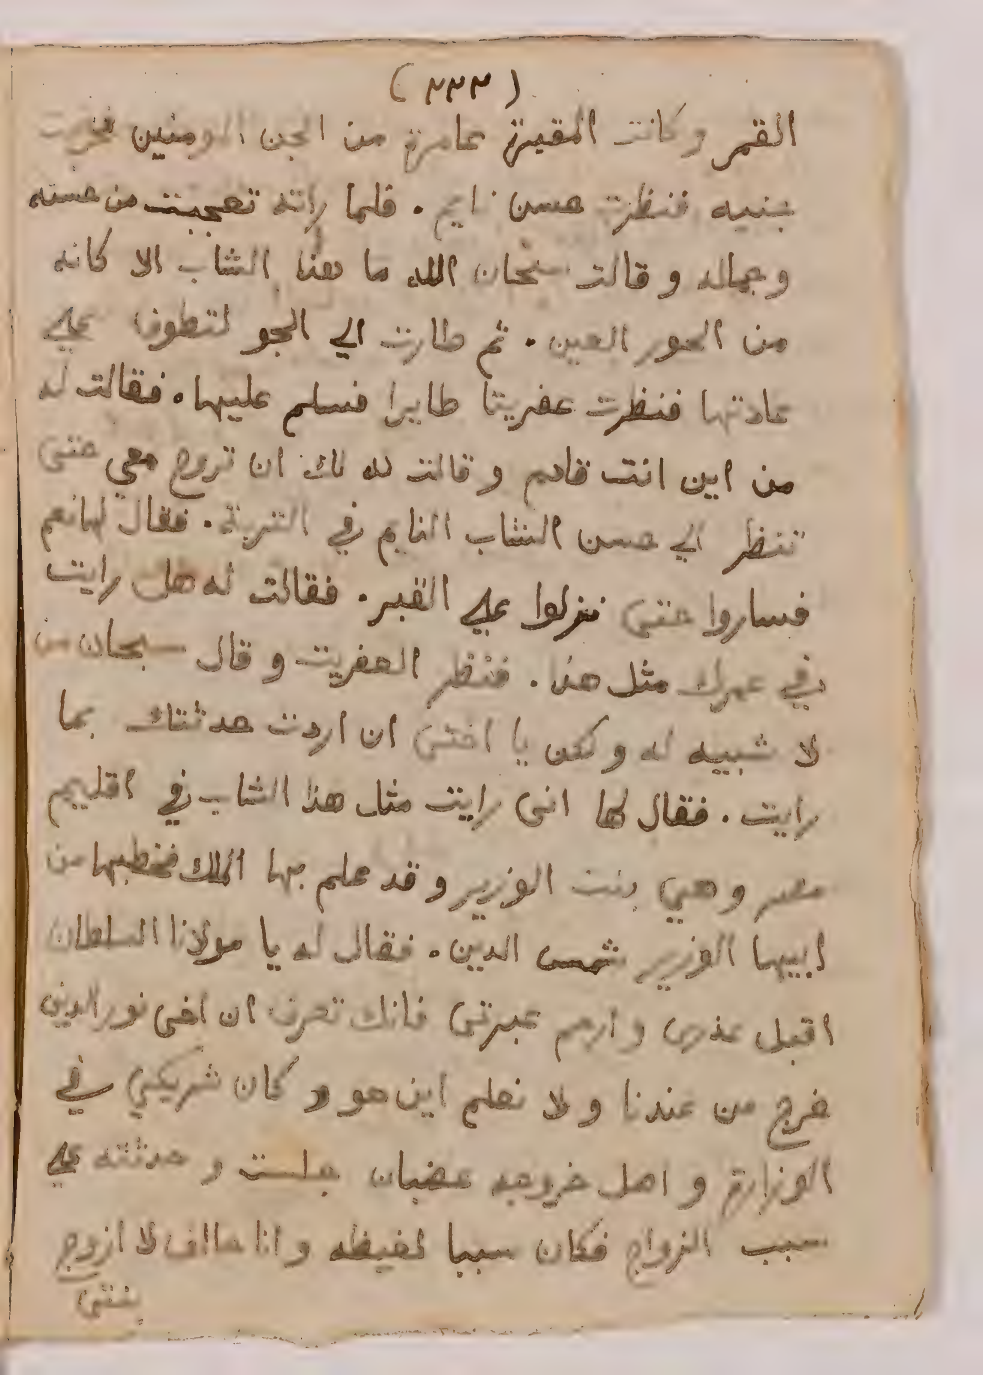 (٢٢٢)
القمر وكانت المقبرة عامرة من الجن المومنين فخرجت
جنيه فنظرت حسن نايم . فلما راته تعجبت من حسنه
وجماله و قالت سبحان الله ما هذا الشاب الا كانه
من الحور العين . ثم طارت الي الجو لتطوف علي
عادتها فنظرت عفريتا طايرا فسلم عليها . فقالت له
من اين انت قادم و قالت له لك ان تروح معي حتى
تنظر الي حسن الشاب النايم في التربة . فقال لها نعم
فساروا حتى نزلوا علي القبر . فقالت له هل رايت
في عمرك مثل هذا . فنظر العفريت و قال سبحان من
لا شبيه له و لكن يا اختى ان اردت حدثتك بما
رايت . فقال لها انى رايت مثل هذا الشاب في اقليم
مصر و هي بنت الوزير و قد علم بها الملك فخطبها من
ابيها الوزير شمس الدين . فقال له يا مولانا السلطان
اقبل عذرى و ارحم عبرتى فانك تعرف ان اخى نور الدين
خرج من عندنا و لا نعلم اين هو و كان شريكي في
الوزارة و اصل خروجه غضبان جلست و حدثته علي
سبب الزواج فكان سببا لغيظه و انا حالف لا ازوج
بنتى